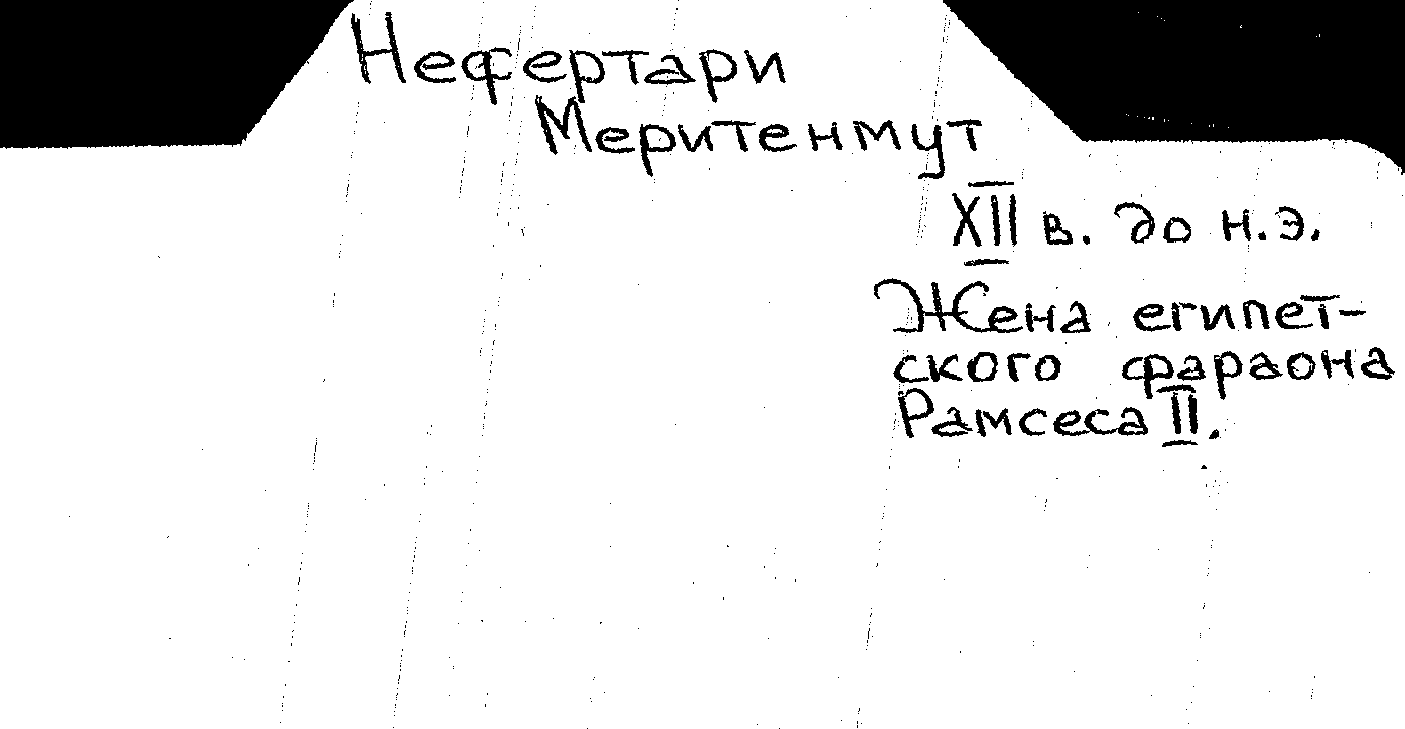 Нефертари
Меритенмут
XII в. до н.э.
Жена египет-
ского фараона
Рамсеса II.